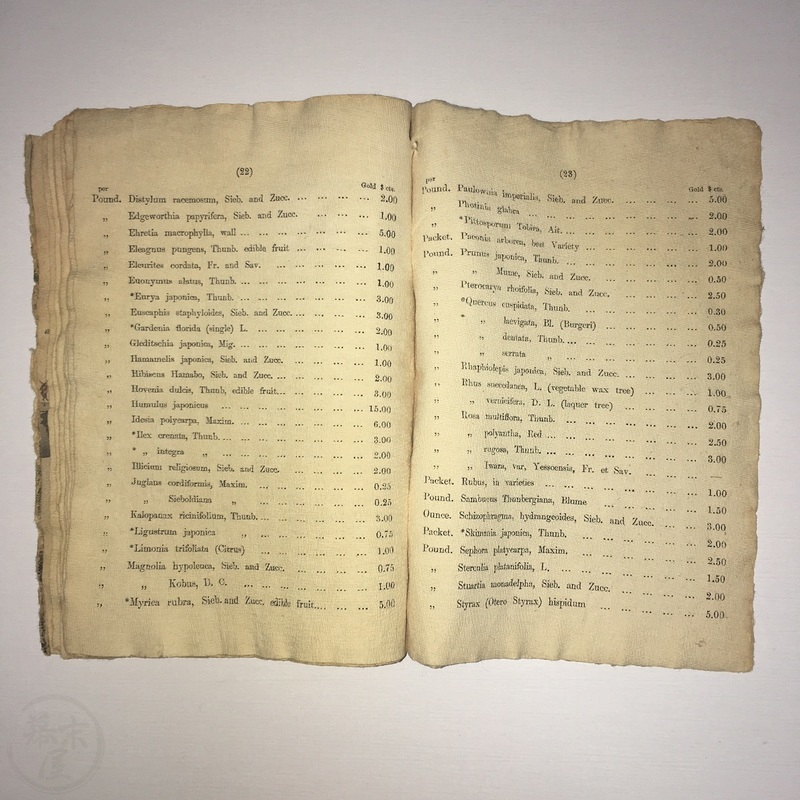 (22)
per Gold $ cts.
Pound. Distylum racemosum, Sieb. and Zucc. ... ... ... ... 2.00
„ Edgeworthia papyrifera, Sieb. and Zucc. ... ... ... 1.00
„ Ehretia macrophylla, wall ... ... ... ... ... ... 5.00
„ Eleagnus pungens, Thunb. edible fruit ... ... ... ... 1.00
„ Eleurites cordata, Fr. and Sav. ... ... ... ... ... 1.00
„ Euonymus alatus, Thunb. ... ... ... ... ... ... 1.00
„ *Eurya japonica, Thunb. ... ... ... ... ... ... 3.00
„ Euscaphis staphyloides, Sieb. and Zucc. ... ... ... ... 3.00
„ *Gardenia florida (single) L. ... ... ... ... ... 2.00
„ Gleditschia japonica, Mig. ... ... ... ... ... ... 1.00
„ Hamamelis japonica, Sieb. and Zucc. ... ... ... ... 1.00
„ Hibiscus Hamabo, Sieb. and Zucc. ... ... ... ... ... 2.00
„ Hovenia dulcis, Thunb. edible fruit... ... ... ... ... 3.00
„ Humulus japonicus ... ... ... ... ... ... ... 15.00
„ Idesia polycarpa, Maxim. ... ... ... ... ... ... 6.00
„ *Ilex crenata, Thunb. ... ... ... ... ... ... ... 3.00
„ * „ integra „ ... ... ... ... ... ... ... 2.00
„ Illicium religiosum, Sieb. and Zucc. ... ... ... ... 2.00
„ Juglans cordiformis, Maxim. ... ... ... ... ... ... 0.25
„ „ Sieboldiana „ ... ... ... ... ... 0.25
„ Kalopanax ricinifolium, Thunb. ... ... ... ... ... ... 3.00
„ *Ligustrum japonica „ ... ... ... ... ... ... 0.75
„ *Limonia trifoliata (Citrus) ... ... ... ... ... ... 1.00
„ Magnolia hypoleuca, Sieb. and Zucc. ... ... ... ... 0.75
„ „ Kobus, D. C. ... ... ... ... ... ... 1.00
„ *Myrica rubra, Sieb. and Zucc. edible fruit... ... ... ... 5.00
(23)
per Gold $ cts.
Pound. Paulownia imperialis, Sieb. and Zucc. ... ... ... ... 5.00
„ Photinia glabra ... ... ... ... ... ... ... 2.00
„ *Pittosporum Tobira, Ait. ... ... ... ... ... ... 2.00
Packet. Paeonia arborea, best Variety ... ... ... ... ... 1.00
Pound. Prunus japonica, Thunb. ... ... ... ... ... ... 2.00
„ „ Mume, Sieb. and Zucc. ... ... ... ... 0.50
„ Pterocarya rhoifolia, Sieb. and Zucc. ... ... ... ... 2.50
„ *Quercus cuspidata, Thunb. ... ... ... ... ... 0.30
„ * „ laevigata, Bl. (Burgeri) ... ... ... ... 0.50
„ „ dentata, Thunb. ... ... ... ... ... 0.25
„ „ serrata „ ... ... ... ... ... 0.25
„ Rhaphiolepis japonica, Sieb. and Zucc. ... ... ... ... 3.00
„ Rhus succedanea, L. (vegetable wax tree) ... ... ... 1.00
„ „ vernicifera, D. L. (laquer tree) ... ... ... ... 0.75
„ Rosa multiflora, Thunb. ... ... ... ... ... ... 2.00
„ „ polyantha, Red ... ... ... ... ... ... 2.50
„ „ rugosa, Thunb. ... ... ... ... ... ... 3.00
„ „ Iwara, var, Yessoensis, Fr. et Sav. ... ... ... —
Packet. Rubus, in varieties ... ... ... ... ... ... 1.00
Pound. Sambucus Thunbergiana, Blume ... ... ... ... 1.50
Ounce. Schizophragma, hydrangeoides, Sieb. and Zucc. ... ... ... 3.00
Packet. *Skimmia japonica, Thunb. ... ... ... ... ... 2.00
Pound. Sophora platycarpa, Maxim. ... ... ... ... ... 2.50
„ Sterculia platanifolia, L. ... ... ... ... ... ... 1.50
„ Stuartia monadelpha, Sieb. and Zucc. ... ... ... ... 2.00
„ Styrax (Otero Styrax) hispidum ... ... ... ... ... 5.00
幕末屋